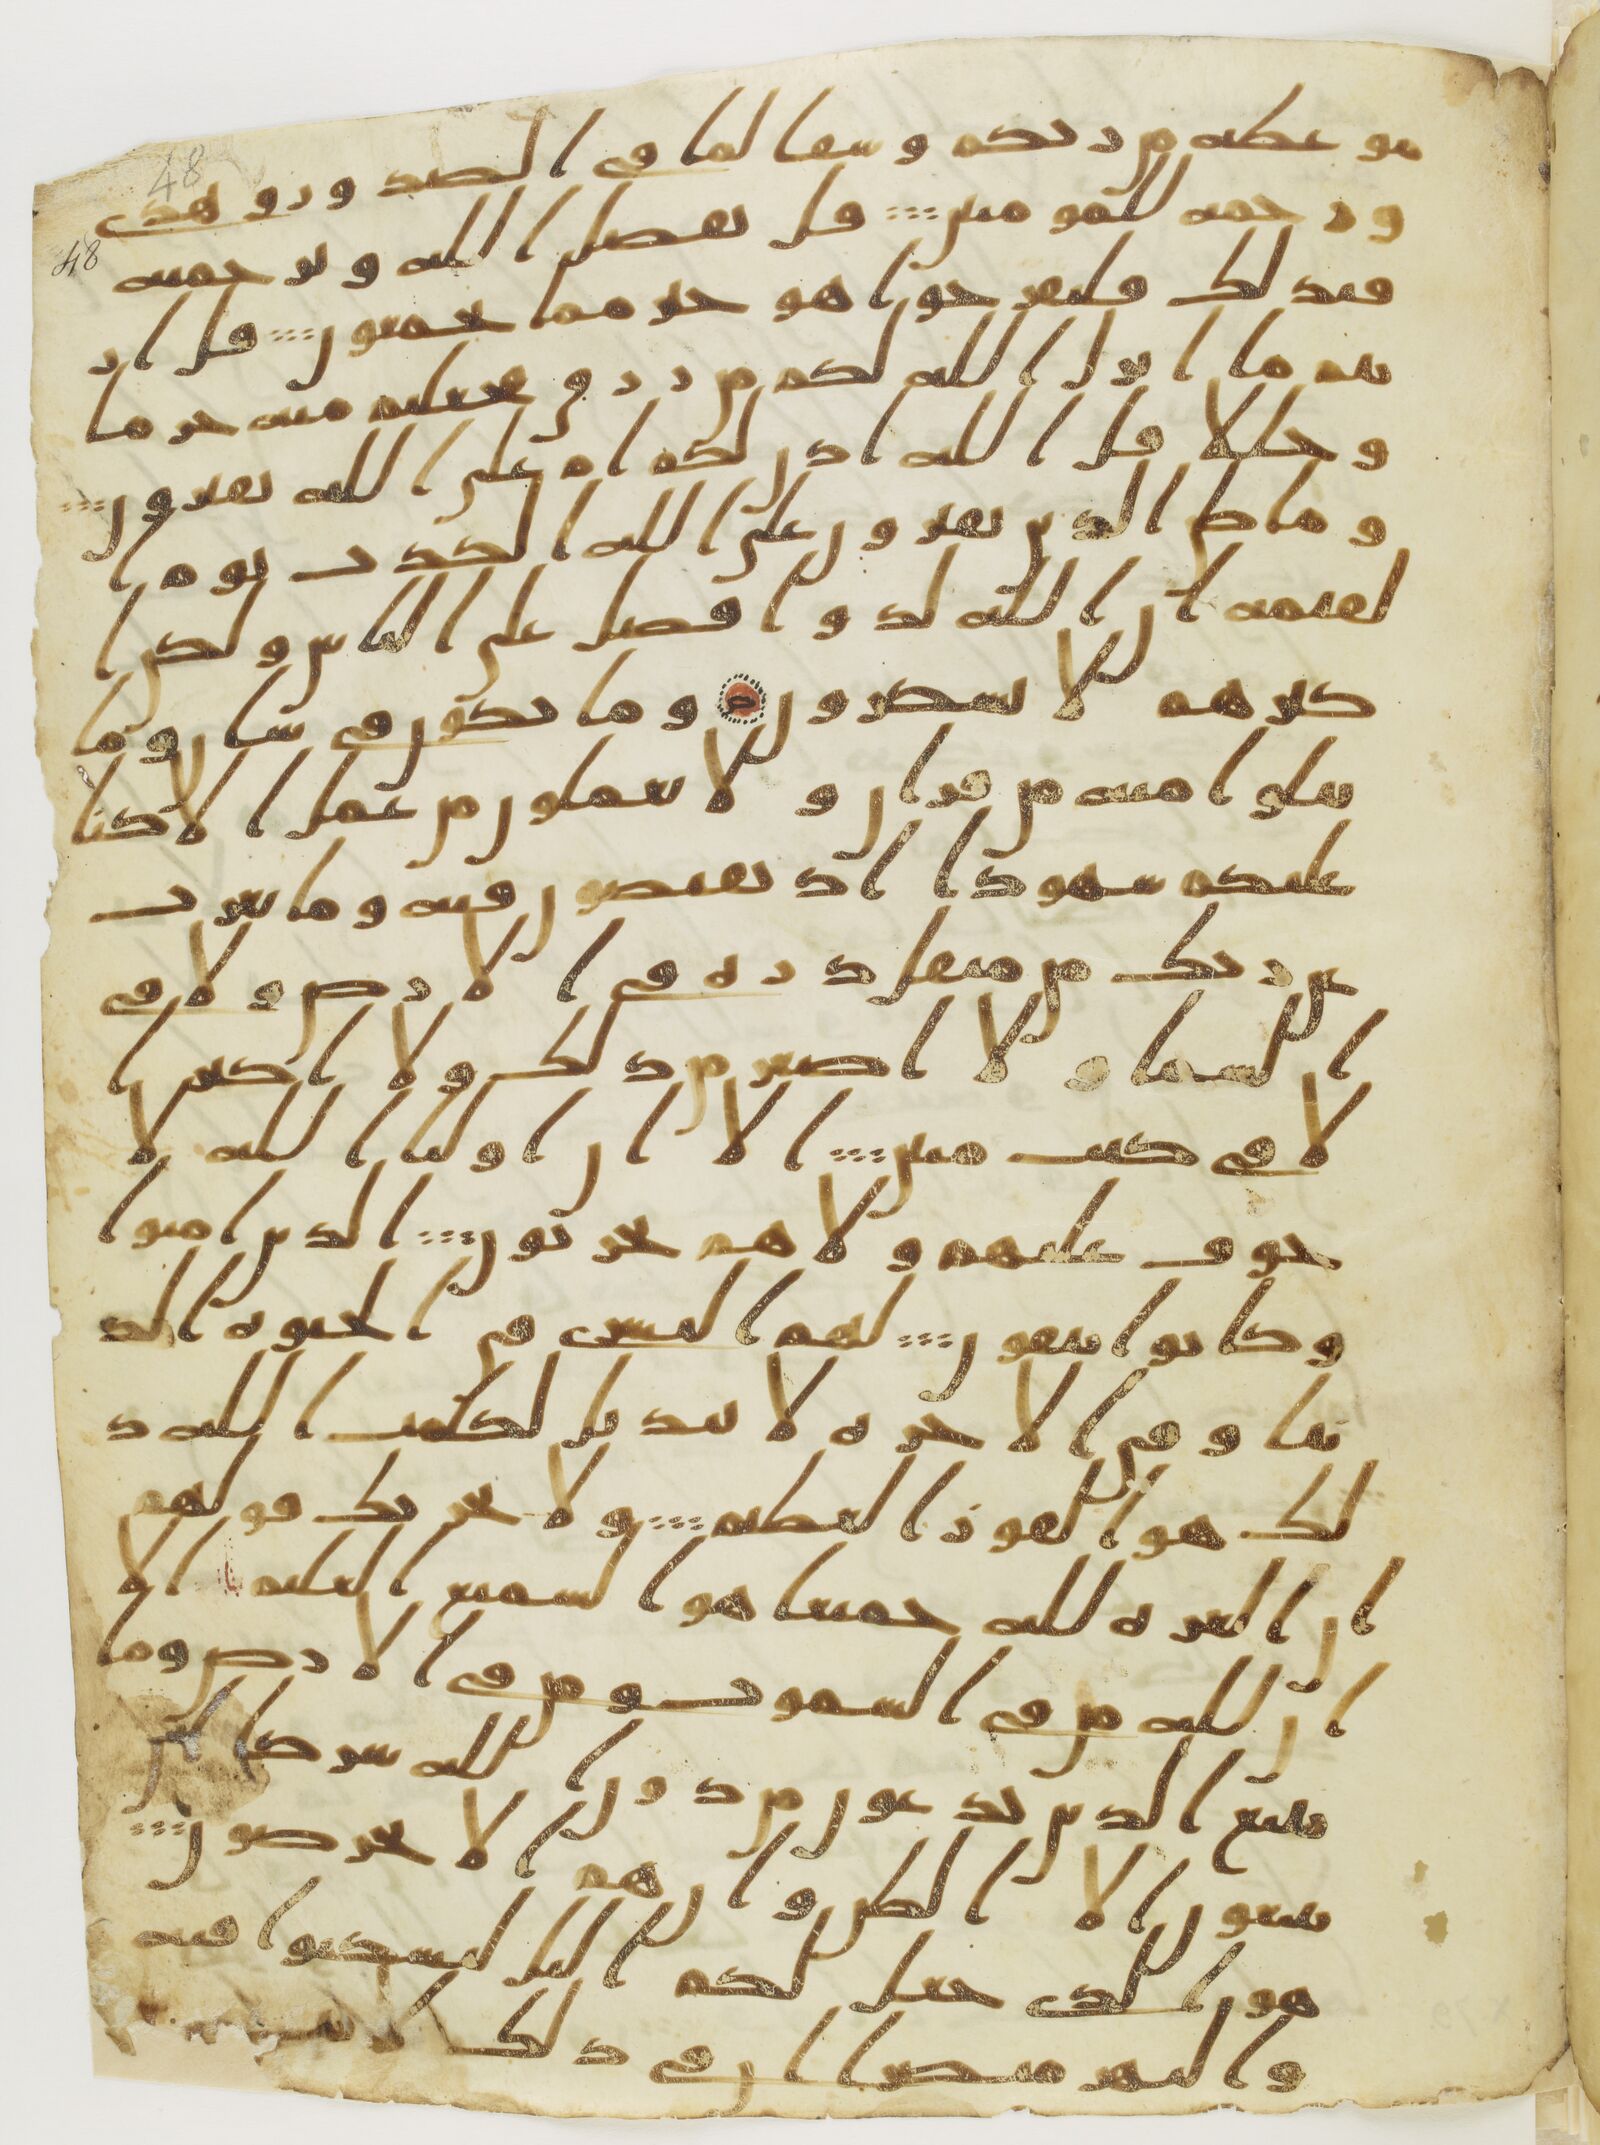 48
48
موعظه من ربكم وشفا لما في الصدور وهدى
ورحمه للمومنين ⁝ قل بفضل الله وبرحمته
فبذلك فليفرحوا هو خير مما يجمعون ⁝ قل ار
يتم ما انزل الله لكم من رزق فجعلتم منه حرما
وحللا قل الله اذن لكم ام على الله تفترون ⁝
وما ظن الذين يفترون على الله الكذب يوم ا
لقيمه ان الله لذوا فضل على الناس ولكن ا
كثرهم لا يشكرون وما تكون في شان وما
تتلوا منه من قران ولا تعملون من عمل الا كنا
عليكم شهودا اذ تفيضون فيه وما يعزب
عن ربك من مثقل ذره في الارض ولا في
السما ولا اصغر من ذلك ولا اكبر ا
لا في كتب مبين ⁝ الا ان اوليا الله لا
خوف عليهم ولا هم يحزنون ⁝ الذين امنوا
وكانوا يتقون ⁝ لهم البشرى في الحيوه الد
نيا وفي الاخره لا تبديل لكلمت الله ذ
لك هو الفوز العظيم ⁝ ولا يحزنك قولهم
ان العزه لله جميعا هو السميع العليم الا
ان لله من في السموت ومن في الارض وما
يتبع الذين يدعون من دون الله شركا ان
يتبعون الا الظن وان هم الا يخرصون ⁝
هو الذي جعل لكم اليل لتسكنوا فيه
والنهر مبصرا ان في ذلك